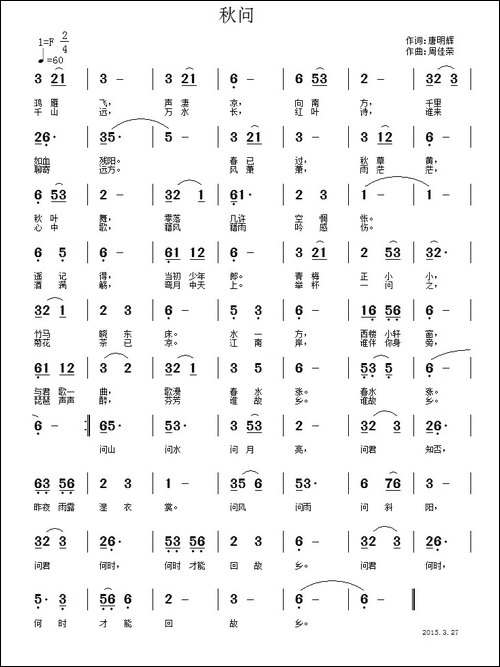 秋问
1=F 2/4
♩=60
作词:唐明辉
作曲:周佳荣
3 21 3 - 3 21 6 - 6 53 2 - 32 3
鸿 雁 飞, 声 凄 凉, 向 南 方, 千里
千 山 远, 万 水 长, 红 叶 诗, 谁来
26· 35· 5 - 3 21 3 - 3 12 6 -
如血 残阳。 春 已 过, 秋 草 黄,
聊寄 远方。 风 萧 萧, 雨 茫 茫,
6 53 2 - 32 1 61· 3 23 1 - 1 -
秋 叶 舞, 零落 几许 空 惆 怅。
心 中 歌, 藉风 藉雨 吟 感 伤。
6 5 6 - 61 12 6 - 3 21 2 53 32·
遥 记 得, 当初 少年 郎。 青 梅 正 小 小,
酒 满 觞, 弯月 中天 上。 举 杯 一 问 之,
32 1 2 3 6 - 5 3 6 - 16 56 6 -
竹马 晓 东 床。 水 一 方, 西楼 小轩 窗,
菊花 茶 已 凉。 江 南 岸, 谁伴 你身 旁,
61 12 3 2 32 3 2 3 6 - 53 56 6 -
与君 歌一 曲, 歌漫 春 水 涨。 春水 涨。
琵琶 声声 醉, 芬芳 谁 故 乡。 谁故 乡。
6 - 65· 53· 3 53 6 - 32 3 26·
问山 问水 问 月 亮, 问君 知否,
63 56 2 3 1 - 35 6 53· 6 76 3 -
昨夜 雨露 湿 衣 裳。 问风 问雨 问 斜 阳,
32 3 26· 53 53 2 3 6 - 32 3 26·
问君 何时, 何时 才能 回 故 乡。 问君 何时,
5· 3 56 6 2 - 3 - 6 - 6 -
何 时 才 能 回 故 乡。
2015.3.27